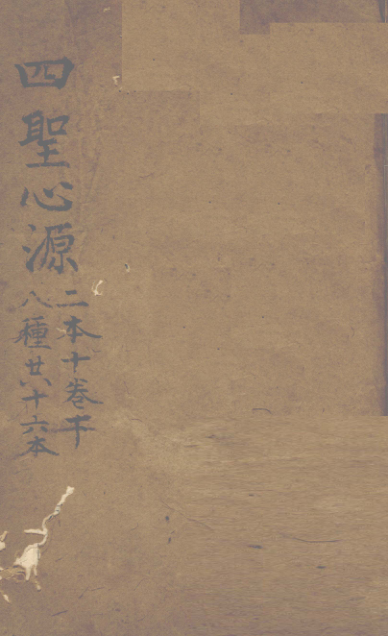 四聖心源
二本十卷下
八種廿八十六本